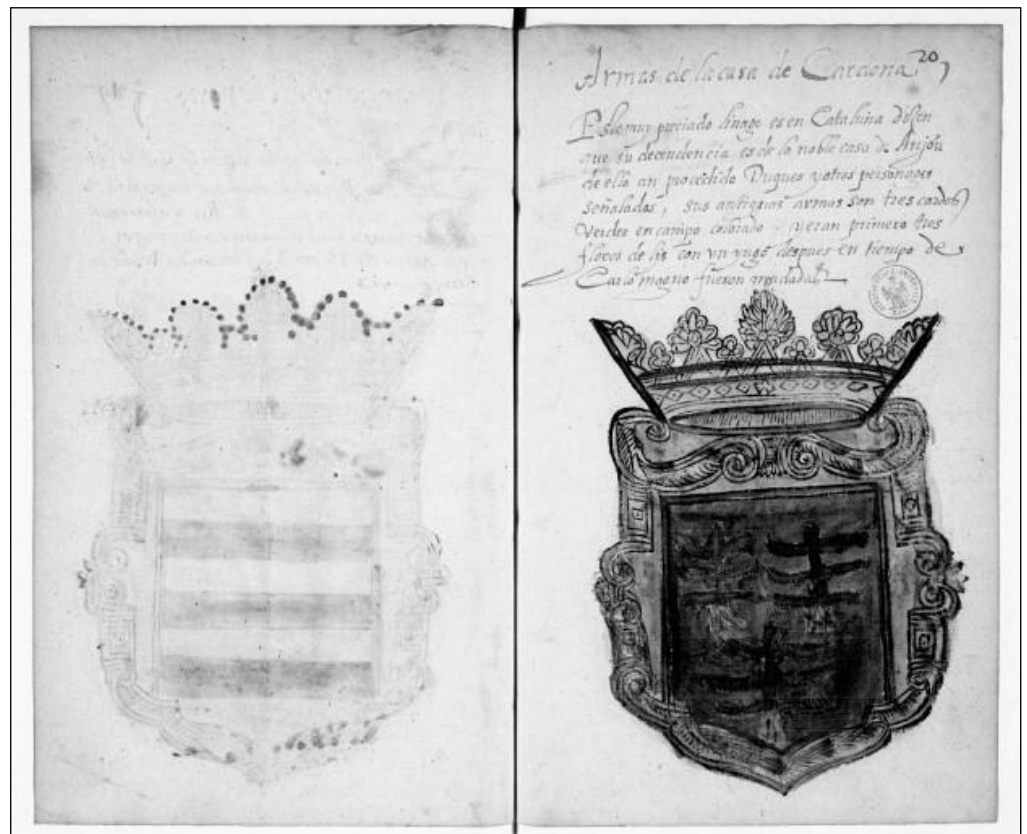 Armas de la casa de Cardona 20
Este muy preciado linage es en Cataluña dizen
que su decendencia es de la noble casa de Anjou
de ella an procedido Duques y otros personages
señalados, sus antiguas armas son tres cardos
verdes en campo colorado y eran primero tres
flores de lis con un yugo despues en tiempo de
Carlo magno fueron mudadas